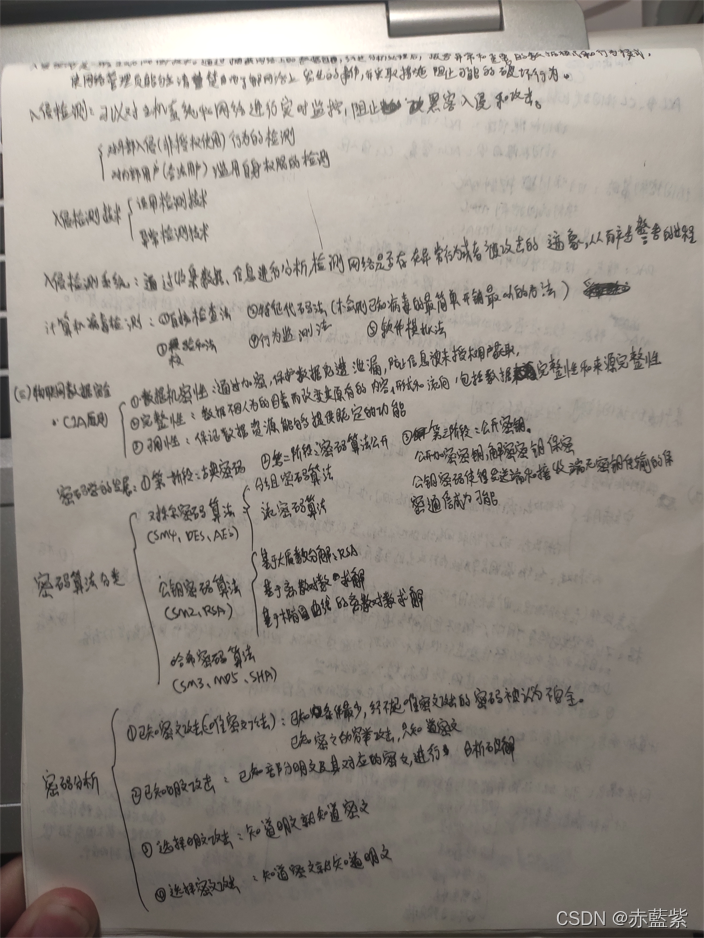 使网络管理员能够清楚地了解网络上发生的事件,并采取措施阻止可能的破坏行为。
入侵检测:可以对主机系统和网络进行实时监控,阻止黑客入侵和攻击。
对外部入侵(非授权使用)行为的检测
对内部用户(合法用户)滥用自身权限的检测
入侵检测技术
误用检测技术
异常检测技术
入侵检测系统:通过收集数据、信息进行分析检测网络是否存在异常行为或者被攻击的迹象,从而产生警告的过程
计算机病毒检测:①直接检查法 ②特征代码法(检测已知病毒的最简单开销最小的方法)
③校验和法 ④行为监测法 ⑤软件模拟法
(三)物联网数据安全
1. CIA应用
①数据机密性:通过加密,保护数据免遭泄漏,防止信息被未授权用户获取,
②完整性:数据不因人为的因素而改变其原有的内容,形式和流向,包括数据完整性和来源完整性
③可用性:保证数据资源能够提供既定的功能
密码学的发展:①第一阶段:古典密码 ②第二阶段:密码算法公开 ③第三阶段:公开密钥。
公开加密密钥,解密密钥保密
公钥密码使得发送端和接收端无密钥传输的保
密通信成为可能
密码算法分类
对称密码算法
(SM4、DES、AES)
分组密码算法
流密码算法
公钥密码算法
(SM2、RSA)
基于大质数分解、RSA
基于离散对数求解
基于椭圆曲线的离散对数求解
哈希密码算法
(SM3、MD5、SHA)
密码分析
①已知密文攻击(唯密文攻击):已知条件最少,经不起唯密文攻击的密码被认为不安全。
已知密文的穷举攻击,只知道密文
②已知明文攻击:已知部分明文及其对应的密文,进行分析破解
③选择明文攻击:知道明文就知道密文
④选择密文攻击:知道密文就知道明文
CSDN @赤藍紫